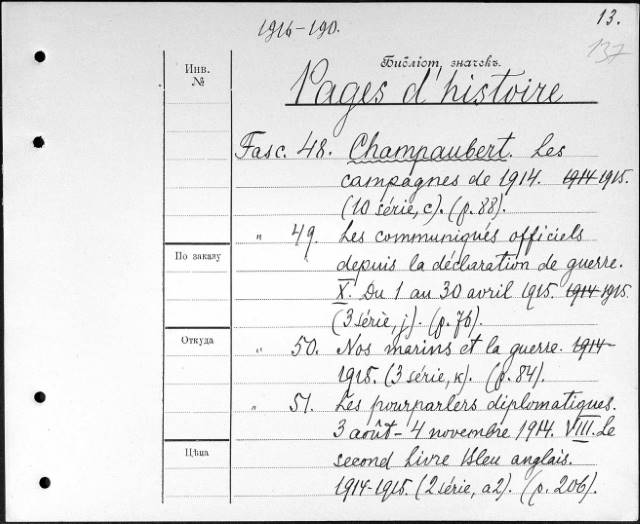 13.
1916-190.
137
Библіот. значекъ.
Инв.
№
Pages d'histoire
Fasc. 48. Champaubert. Les
campagnes de 1914. 1914 1915.
(10 série, c). (p. 88).
„ 49. Les communiqués officiels
По заказу
depuis la déclaration de guerre.
X. Du 1 au 30 avril 1915. 1914 1915.
(3 série, j). (p. 76).
Откуда
„ 50. Nos marins et la guerre. 1914-
1915. (3 série, k). (p. 84).
„ 51. Les pourparlers diplomatiques.
3 août - 4 novembre 1914. VIII. Le
Цѣна
second Livre Bleu anglais.
1914-1915. (2 série, a2). (p. 206).